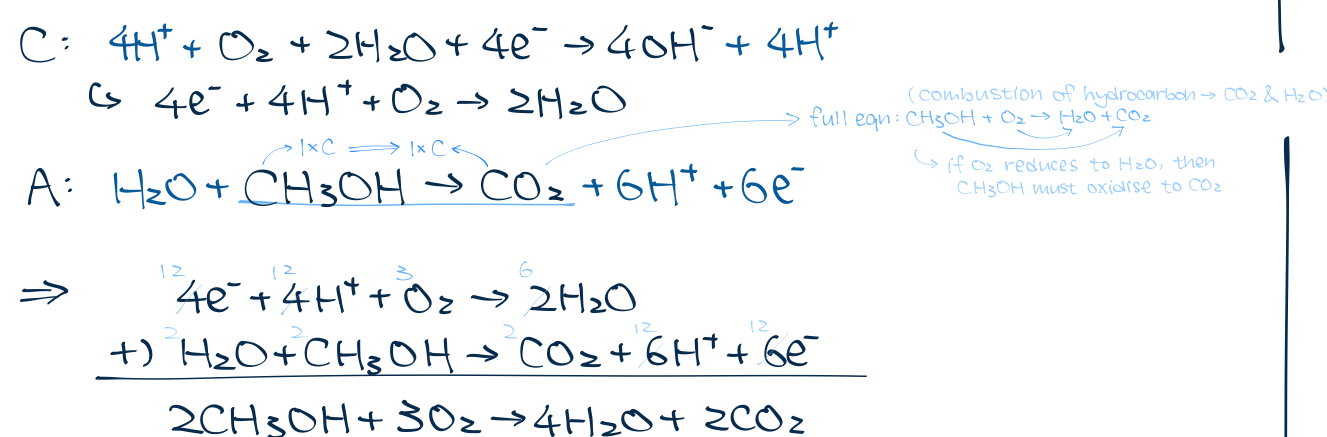 C: 4H⁺ + O₂ + 2H₂O + 4e⁻ → 4OH⁻ + 4H⁺
↳ 4e⁻ + 4H⁺ + O₂ → 2H₂O
(combustion of hydrocarbon → CO₂ & H₂O)
full eqn: CH₃OH + O₂ → H₂O + CO₂
↳ if O₂ reduces to H₂O, then
CH₃OH must oxidise to CO₂
1×C ⟹ 1×C
A: H₂O + CH₃OH → CO₂ + 6H⁺ + 6e⁻
12 12 3 6
⇒ 4e⁻ + 4H⁺ + O₂ → 2H₂O
2 2 2 12 12
+) H₂O + CH₃OH → CO₂ + 6H⁺ + 6e⁻
2CH₃OH + 3O₂ → 4H₂O + 2CO₂